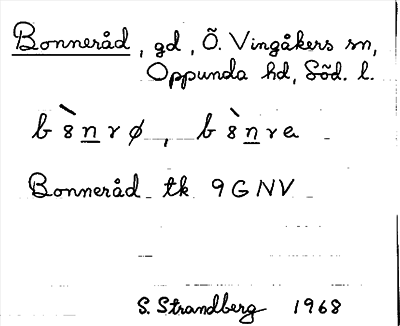 Bonneråd, gd, Õ. Vingåkers sn,
Oppunda hd, Sõd. l.
b ò n r ø, b ò n r a
Bonneråd tk 9GNV
S. Strandberg 1968